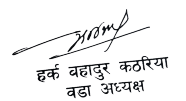 हर्क वहादुर कठरिया
वडा अध्यक्ष